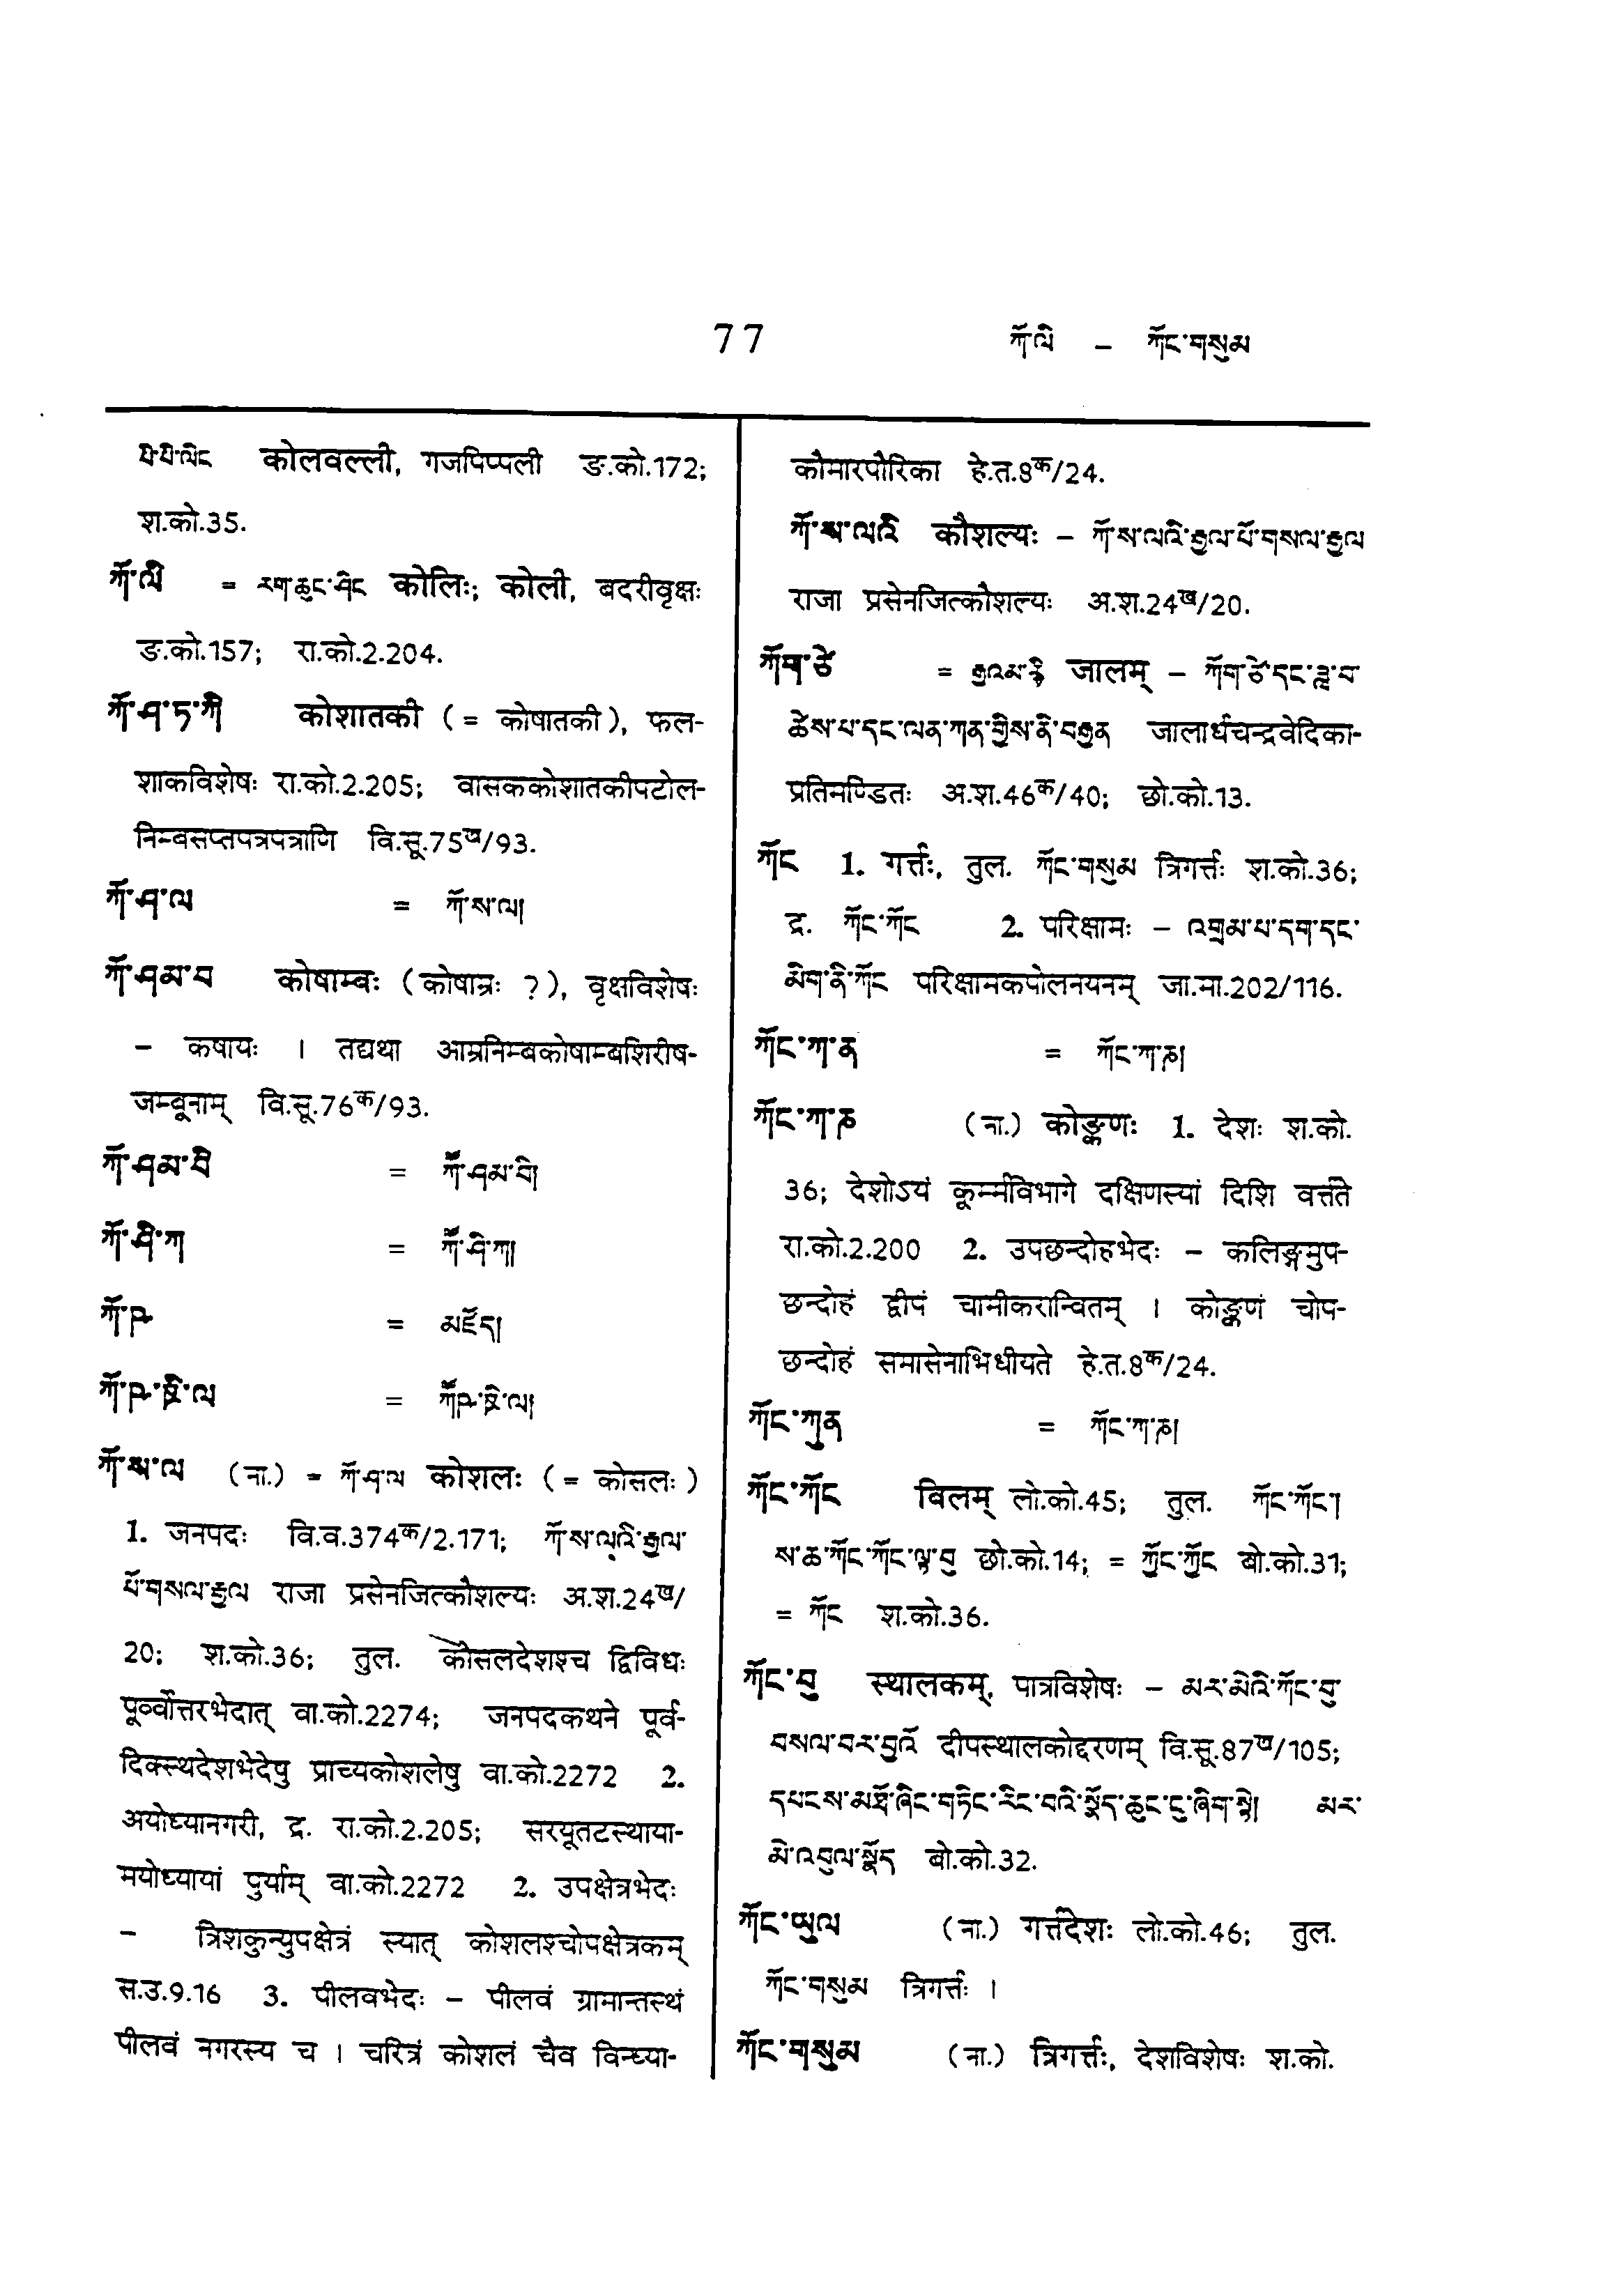 77 ཀོ་ལི – ཀོང་གསུམ
པི་པི་ལིང कोलवल्ली, गजपिप्पली ङ.को.172;
श.को.35.
ཀོ་ལི = རག་ཆུང་ཤིང कोलिः; कोली, बदरीवृक्षः
ङ.को.157; रा.को.2.204.
ཀོ་ཤ་ཏ་ཀི कोशातकी (= कोषातकी), फल-
शाकविशेषः रा.को.2.205; वासककोशातकीपटोल-
निम्बसप्तपत्रपत्राणि वि.सू.75ख/93.
ཀོ་ཤ་ལ = ཀོ་ས་ལ།
ཀོ་ཤམ་བ कोषाम्बः (कोषाम्रः ?), वृक्षविशेषः
– कषायः । तद्यथा आम्रनिम्बकोषाम्बशिरीष-
जम्बूनाम् वि.सू.76क/93.
ཀོ་ཤམ་བི = ཀཽ་ཤམ་བི།
ཀོ་ཤི་ཀ = ཀཽ་ཤི་ཀ།
ཀོ་ཥ = མཛོད།
ཀོ་ཥ་ཋི་ལ = ཀཽཥ་ཋི་ལ།
ཀོ་ས་ལ (ना.) = ཀོ་ཤ་ལ कोशलः (= कोसलः)
1. जनपदः वि.व.374क/2.171; ཀོ་ས་ལའི་རྒྱལ་
པོ་གསལ་རྒྱལ राजा प्रसेनजित्कौशल्यः अ.श.24ख/
20; श.को.36; तुल. कोसलदेशश्च द्विविधः
पूर्व्वोत्तरभेदात् वा.को.2274; जनपदकथने पूर्व-
दिक्स्थदेशभेदेषु प्राच्यकोशलेषु वा.को.2272 2.
अयोध्यानगरी, द्र. रा.को.2.205; सरयूतटस्थाया-
मयोध्यायां पुर्याम् वा.को.2272 2. उपक्षेत्रभेदः
– त्रिशकुन्युपक्षेत्रं स्यात् कोशलश्चोपक्षेत्रकम्
स.उ.9.16 3. पीलवभेदः – पीलवं ग्रामान्तस्थं
पीलवं नगरस्य च । चरित्रं कोशलं चैव विन्ध्या-
कौमारपौरिका हे.त.8क/24.
ཀོ་ས་ལའི कौशल्यः – ཀོ་ས་ལའི་རྒྱལ་པོ་གསལ་རྒྱལ
राजा प्रसेनजित्कौशल्यः अ.श.24ख/20.
ཀོག་ཙེ = जालम् – ཀོག་ཙེ་དང་ཟླ་བ་
ཚེས་པ་དང་ལན་ཀན་གྱིས་ནི་བརྒྱན जालार्धचन्द्रवेदिका-
प्रतिमण्डितः अ.श.46क/40; छो.को.13.
ཀོང 1. गर्त्तः, तुल. ཀོང་གསུམ त्रिगर्त्तः श.को.36;
द्र. ཀོང་ཀོང 2. परिक्षामः – འགྲམ་པ་དག་དང་
མིག་ནི་ཀོང परिक्षामकपोलनयनम् जा.मा.202/116.
ཀོང་ཀ་ན = ཀོང་ཀ་ཎ།
ཀོང་ཀ་ཎ (ना.) कोङ्कणः 1. देशः श.को.
36; देशोऽयं कूर्म्मविभागे दक्षिणस्यां दिशि वर्त्तते
रा.को.2.200 2. उपछन्दोहभेदः – कलिङ्गमुप-
छन्दोहं द्वीपं चामीकरान्वितम् । कोङ्कणं चोप-
छन्दोहं समासेनाभिधीयते हे.त.8क/24.
ཀོང་ཀུན = ཀོང་ཀ་ཎ།
ཀོང་ཀོང बिलम् लो.को.45; तुल. ཀོང་ཀོང་།
ས་ཆ་ཀོང་ཀོང་ལྟ་བུ छो.को.14; = ཀྱོང་ཀྱོང बो.को.31;
= ཀོང श.को.36.
ཀོང་བུ स्थालकम्, पात्रविशेषः – མར་མེའི་ཀོང་བུ་
བསལ་བར་བྱའོ दीपस्थालकोद्दरणम् वि.सू.87ख/105;
དཔངས་མཐོ་ཞིང་གཏིང་རིང་བའི་སྣོད་ཆུང་ངུ་ཞིག་སྟེ། མར་
མེ་འབུལ་སྣོད बो.को.32.
ཀོང་ཡུལ (ना.) गर्त्तदेशः लो.को.46; तुल.
ཀོང་གསུམ त्रिगर्त्तः ।
ཀོང་གསུམ (ना.) त्रिगर्त्तः, देशविशेषः श.को.